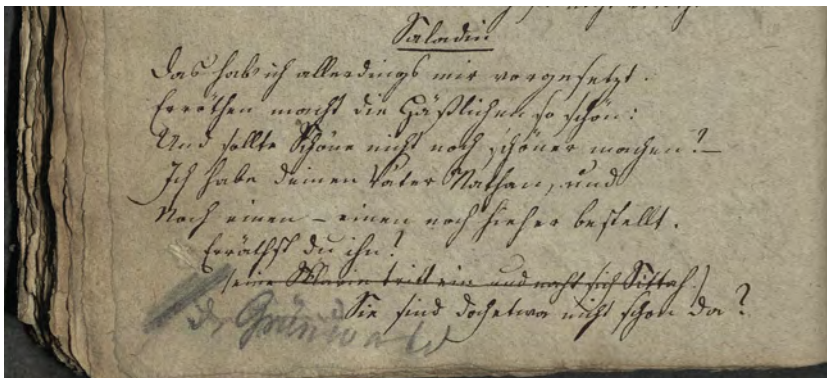 Saladin
Das hab' ich allerdings mir vorgesetzt.
Erröthen macht die Häßlichen so schön:
Und sollte Schöne nicht noch schöner machen? –
Ich habe deinen Vater Nathan, und
Noch einen – einen noch hieher bestellt.
Erräthst du ihn?
(eine Sclavin tritt ein und naht sich Sittah.)
Sie sind doch etwa nicht schon da?